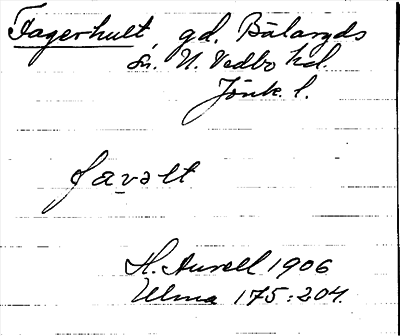 Fagerhult, gd. Bälaryds
sn. N. Vedbo hd.
Jönk. l.
favəlt
H. Aurell 1906
Ulma 175:204.